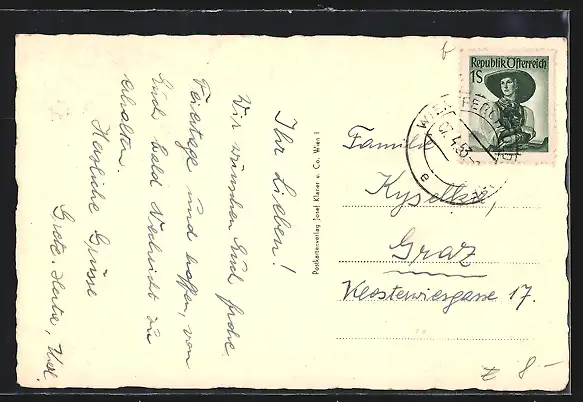 Ihr Lieben!
Wir wünschen Euch frohe
Feiertage und hoffen, von
Euch bald Nachricht zu
erhalten.
Herzliche Grüsse
Grete, Herta,
Postkartenverlag Josef Klaser u. Co. Wien I
Republik Österreich
1S
WIEN
e
Familie
Kyselka,
Graz
Klosterwiesgasse 17.
8-